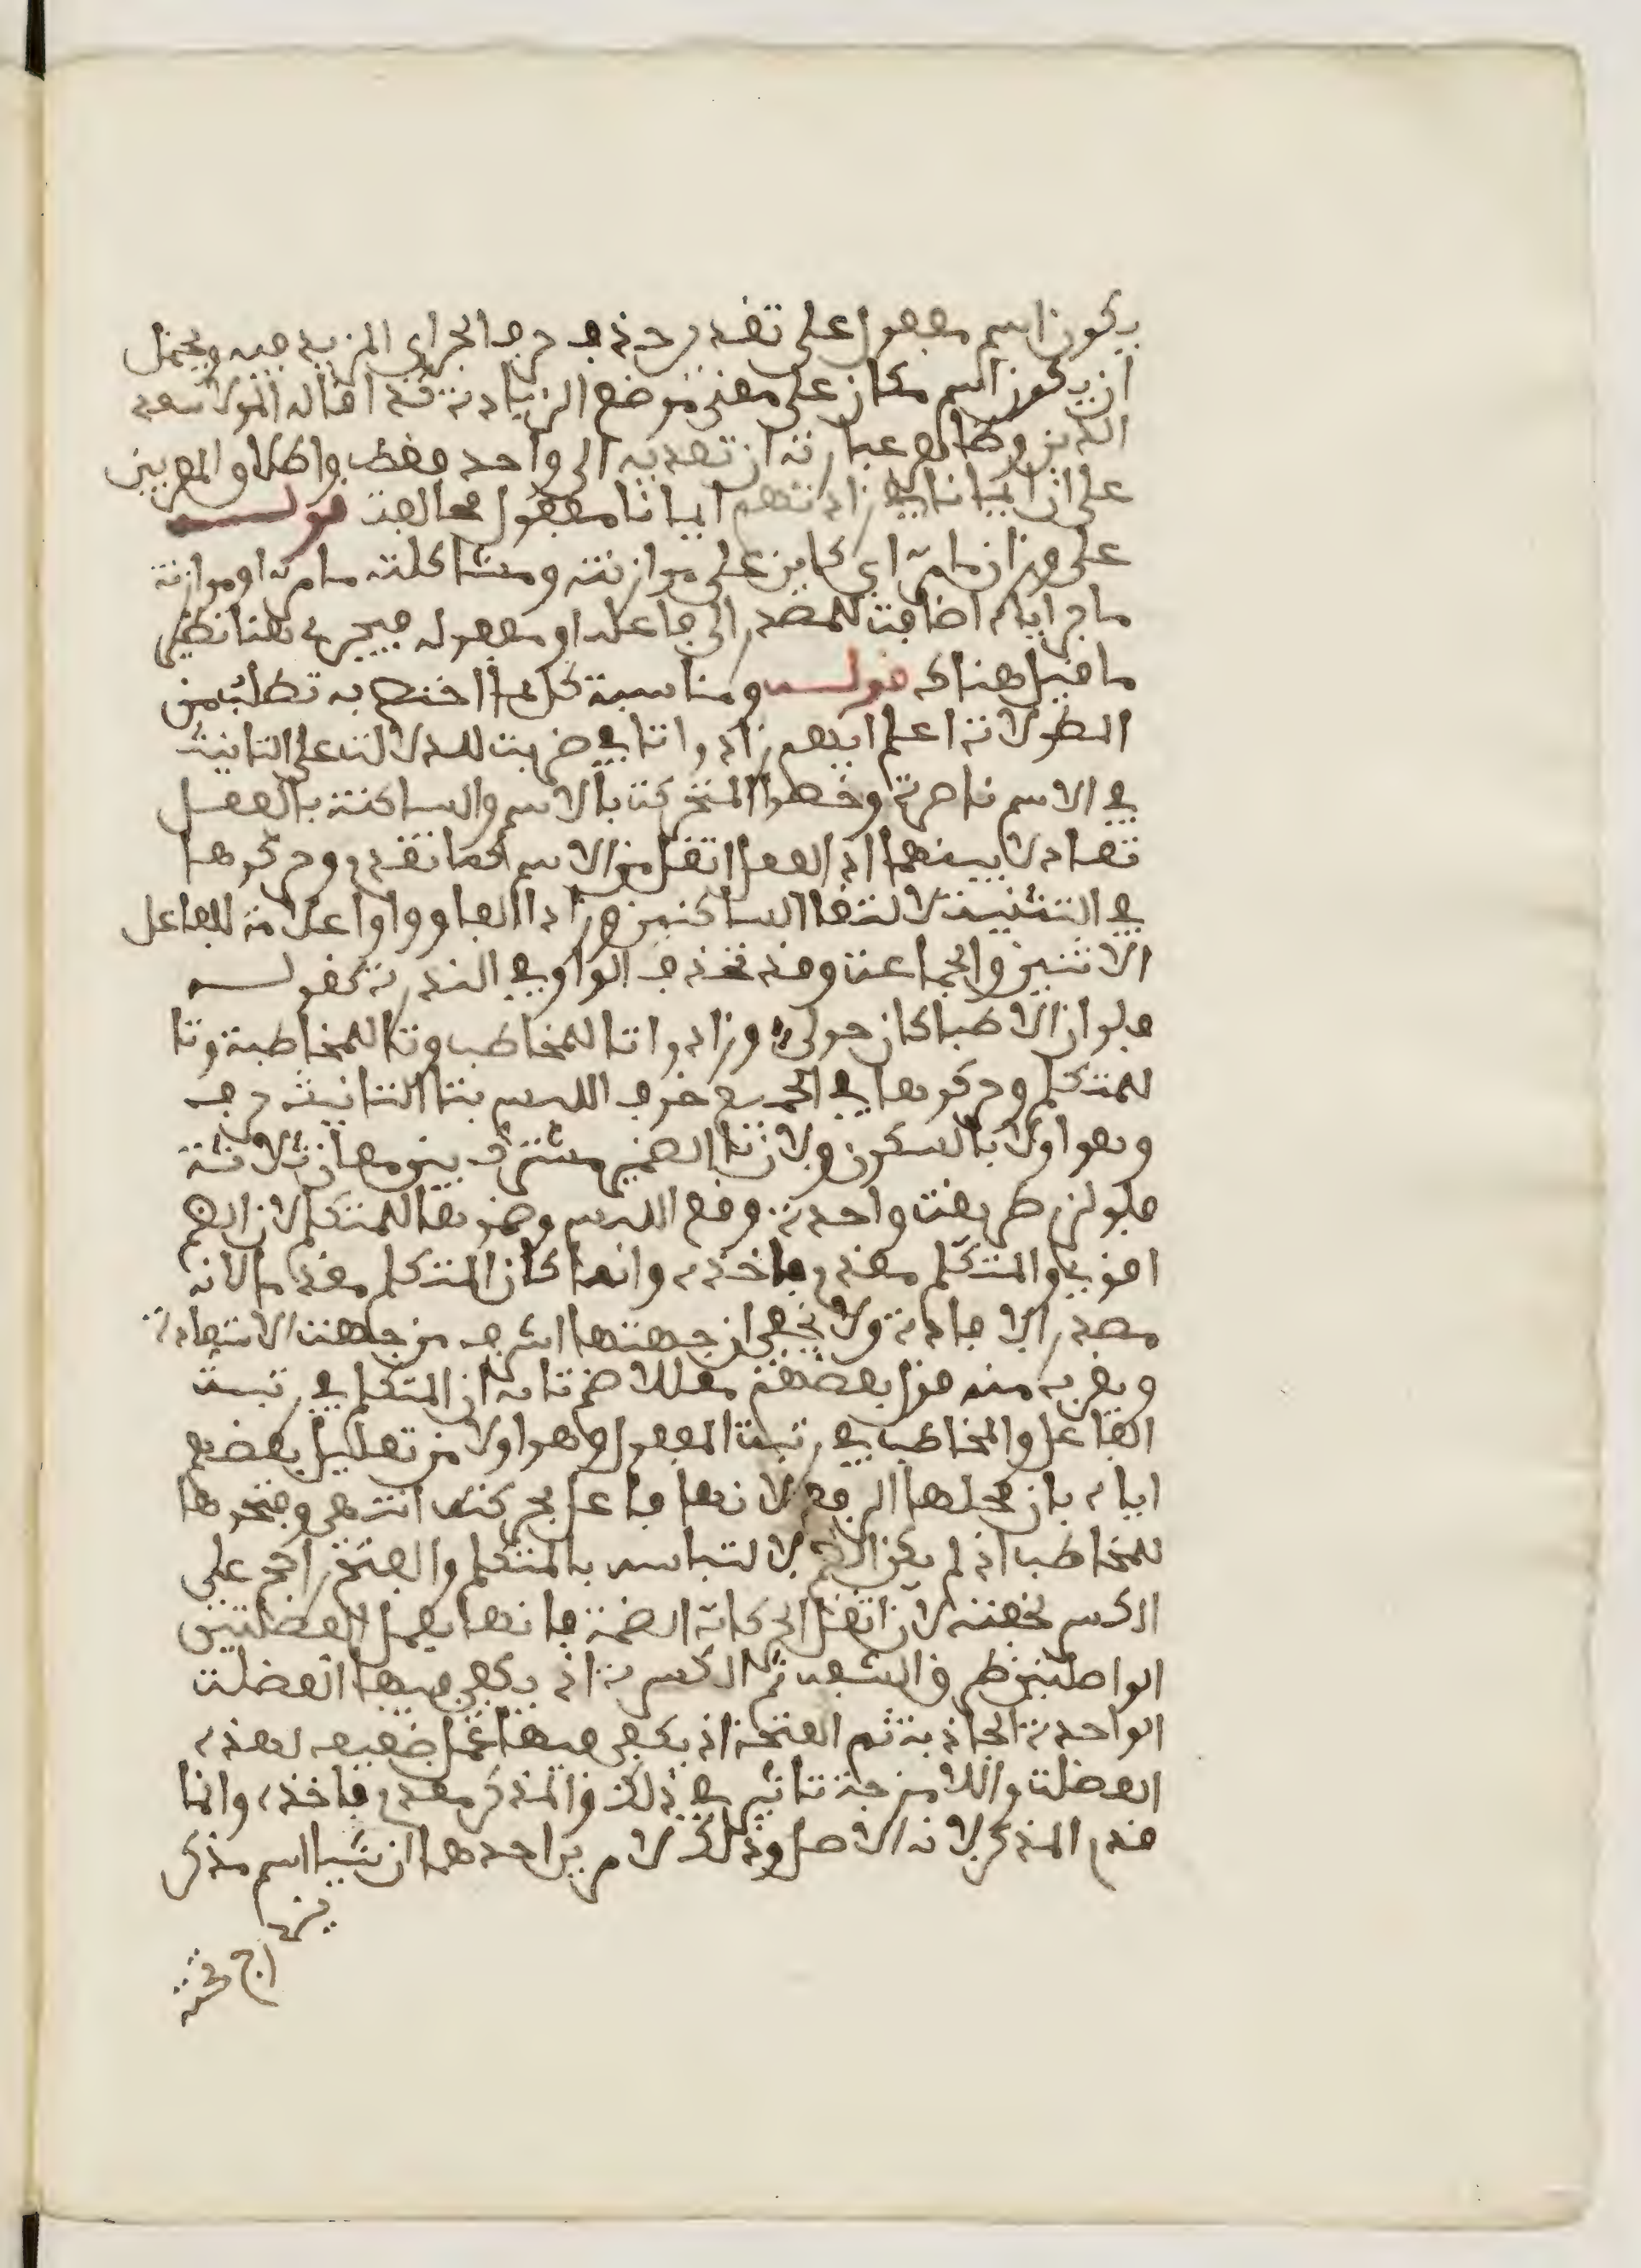 يكون اسم مفعول على تقدير حذف حرف الجر اي المزيد فيه ويحتمل
ان يكون اسم مكان على معنى موضع الزيادة قد افاله المولا سعد
الدين وظاهر عبارته ان تعديه الى واحد فقط واطلاق المعربين
على ان ايمانا في زادتهم ايمانا مفعول مخالف قوله
على وزان ما مر اي كاين على موازنته ومشاكلته ما مر او موازنة
ما مر اياه اضافة للمصدر الى فاعله او مفعوله فيجري هنا نظير
ما قيل هناك قوله ومناسبة كل لما اختص به تطلب من
المطولات اعلم انهم زادوا تا في ضربت للدلالة على التانيث
في الاسم ناصرة وخصوا المتحركة بالاسم والساكنة بالفعل
تعادلا بينهما اذ الفعل اثقل من الاسم كما تقدم وحركوها
في التثنية لالتقا الساكنين وزادا الفا وواوا علامة للفاعل
الاثنين والجماعة وقد تحذف الواو في الندرة كقوله
فلو ان الاطبا كان حولي وزادوا تا للمخاطب وتا للمخاطبة وتا
للمتكلم وحركوها في الجميع خوف اللبس بتا التانيث حرف
وهو اولا بالسكون ولان تا الضمير مشترك بين معان ثلاثة
فلو لزم طريقة واحدة وقع اللبس وضموها للمتكلم لان الضم
اقوى والمتكلم مقدم فاخذه وانما كان المتكلم مقدما لانه
مصدر الافادة ولا يخفى ان جهتها اشرف من جهة الاستفادة
ويقرب منه قول بعضهم معللا ضم تا به ان المتكلم في رتبة
الفاعل والمخاطب في رتبة المفعول وهو اولا من تعليل بعضهم
اياه بان محلها الرفع لانها فاعل بحركته انتهى وفتحوها
للمخاطب اذ لم يكن الضم للالتباس بالمتكلم والفتح راجح على
الكسر لخفته لان اثقل الحركات الضمة فانها بعمل العضلتين
الواصلتين طرفي الشفة ثم الكسرة اذ يكفي فيها العضلة
الواحدة الجاذبة ثم الفتحة اذ يكفي فيها عمل ضعيف لهذه
العضلة وللامزجة تاثير في ذلك والمذكر مقدم فاخذه وانما
قدم المذكر لانه الاصل وذلك لامرين احدهما ان شيا اسم مذكر